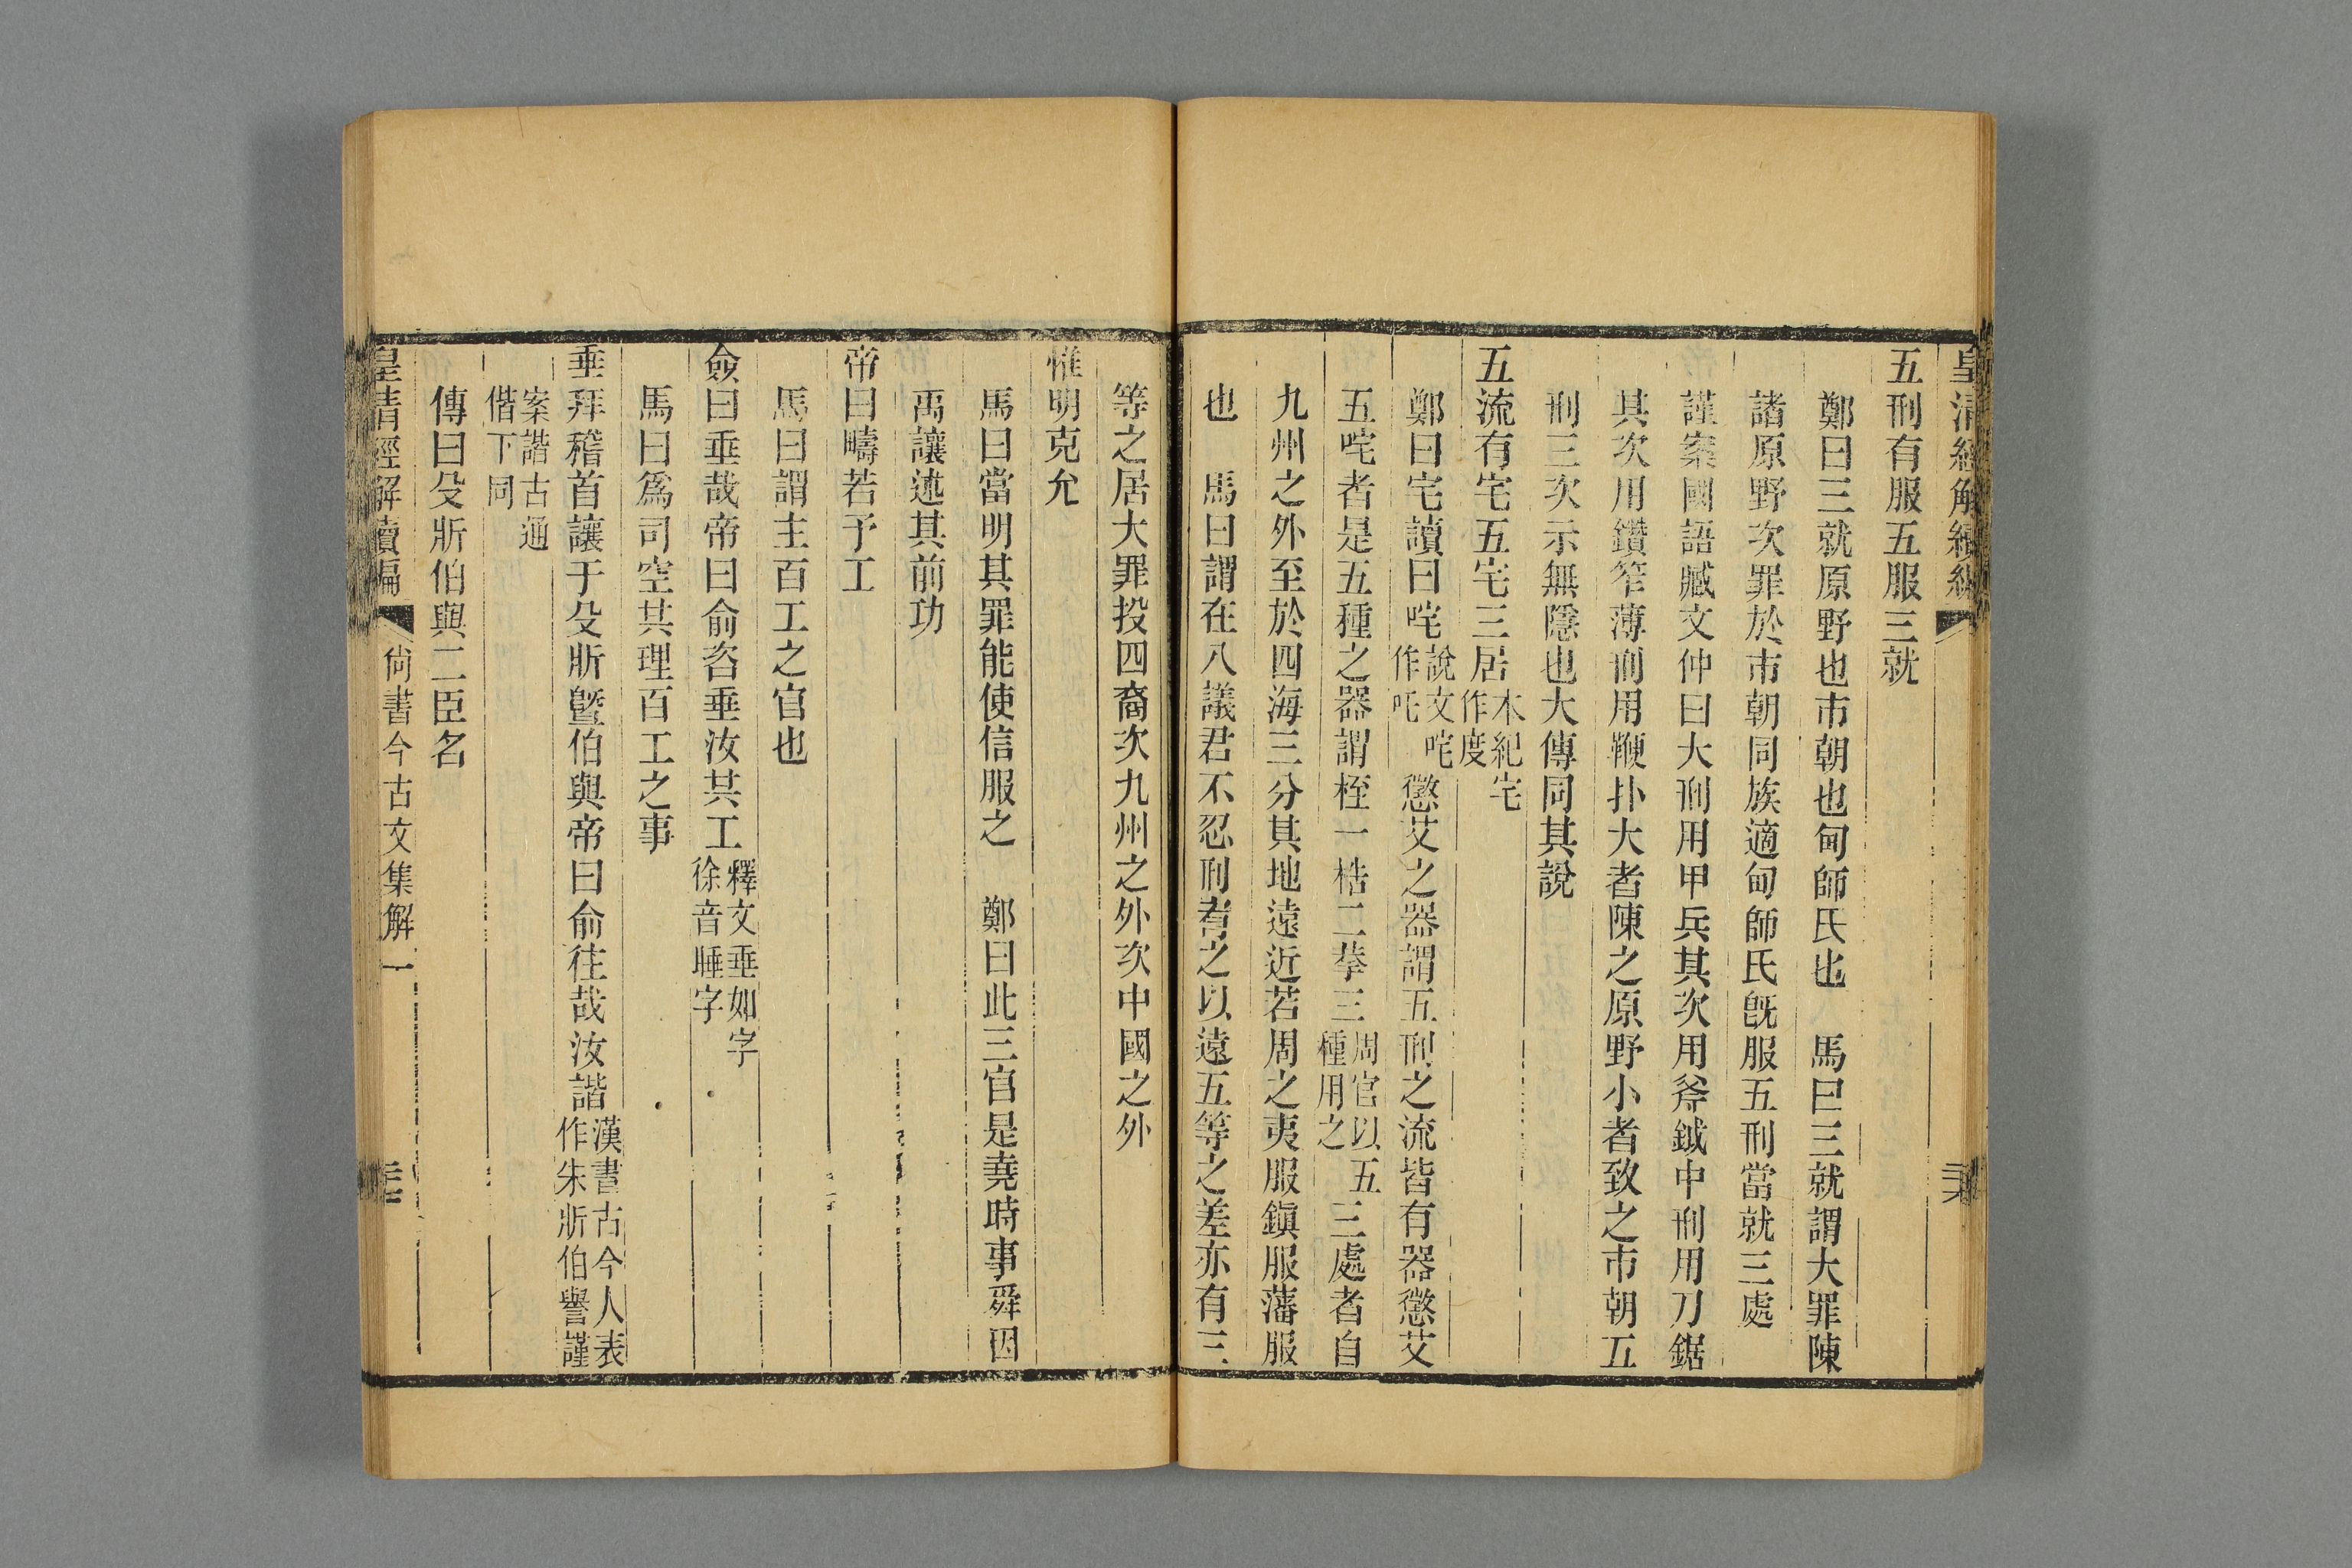 皇清經解續編
五刑有服五服三就
鄭曰三就原野也市朝也甸師氏也　馬曰三就謂大罪陳
諸原野次罪於市朝同族適甸師氏旣服五刑當就三處
謹案國語臧文仲曰大刑用甲兵其次用斧鉞中刑用刀鋸
其次用鑽笮薄刑用鞭扑大者陳之原野小者致之市朝五
刑三次示無隱也大傳同其說
五流有宅五宅三居本紀宅作度
鄭曰宅讀曰咤說文咤作吒懲艾之器謂五刑之流皆有器懲艾
五咤者是五種之器謂桎一梏二拲三周官以五種用之三處者自
九州之外至於四海三分其地遠近若周之夷服鎭服藩服
也　馬曰謂在八議君不忍刑宥之以遠五等之差亦有三
等之居大罪投四裔次九州之外次中國之外
惟明克允
馬曰當明其罪能使信服之　鄭曰此三官是堯時事舜因
禹讓述其前功
帝曰疇若予工
馬曰謂主百工之官也
僉曰垂哉帝曰俞咨垂汝其工釋文垂如字徐音睡字
馬曰爲司空共理百工之事
垂拜稽首讓于殳斨曁伯與帝曰俞往哉汝諧漢書古今人表作朱斨伯譽謹
案諧古通偕下同
傳曰殳斨伯與二臣名
皇清經解續編　尙書今古文集解一